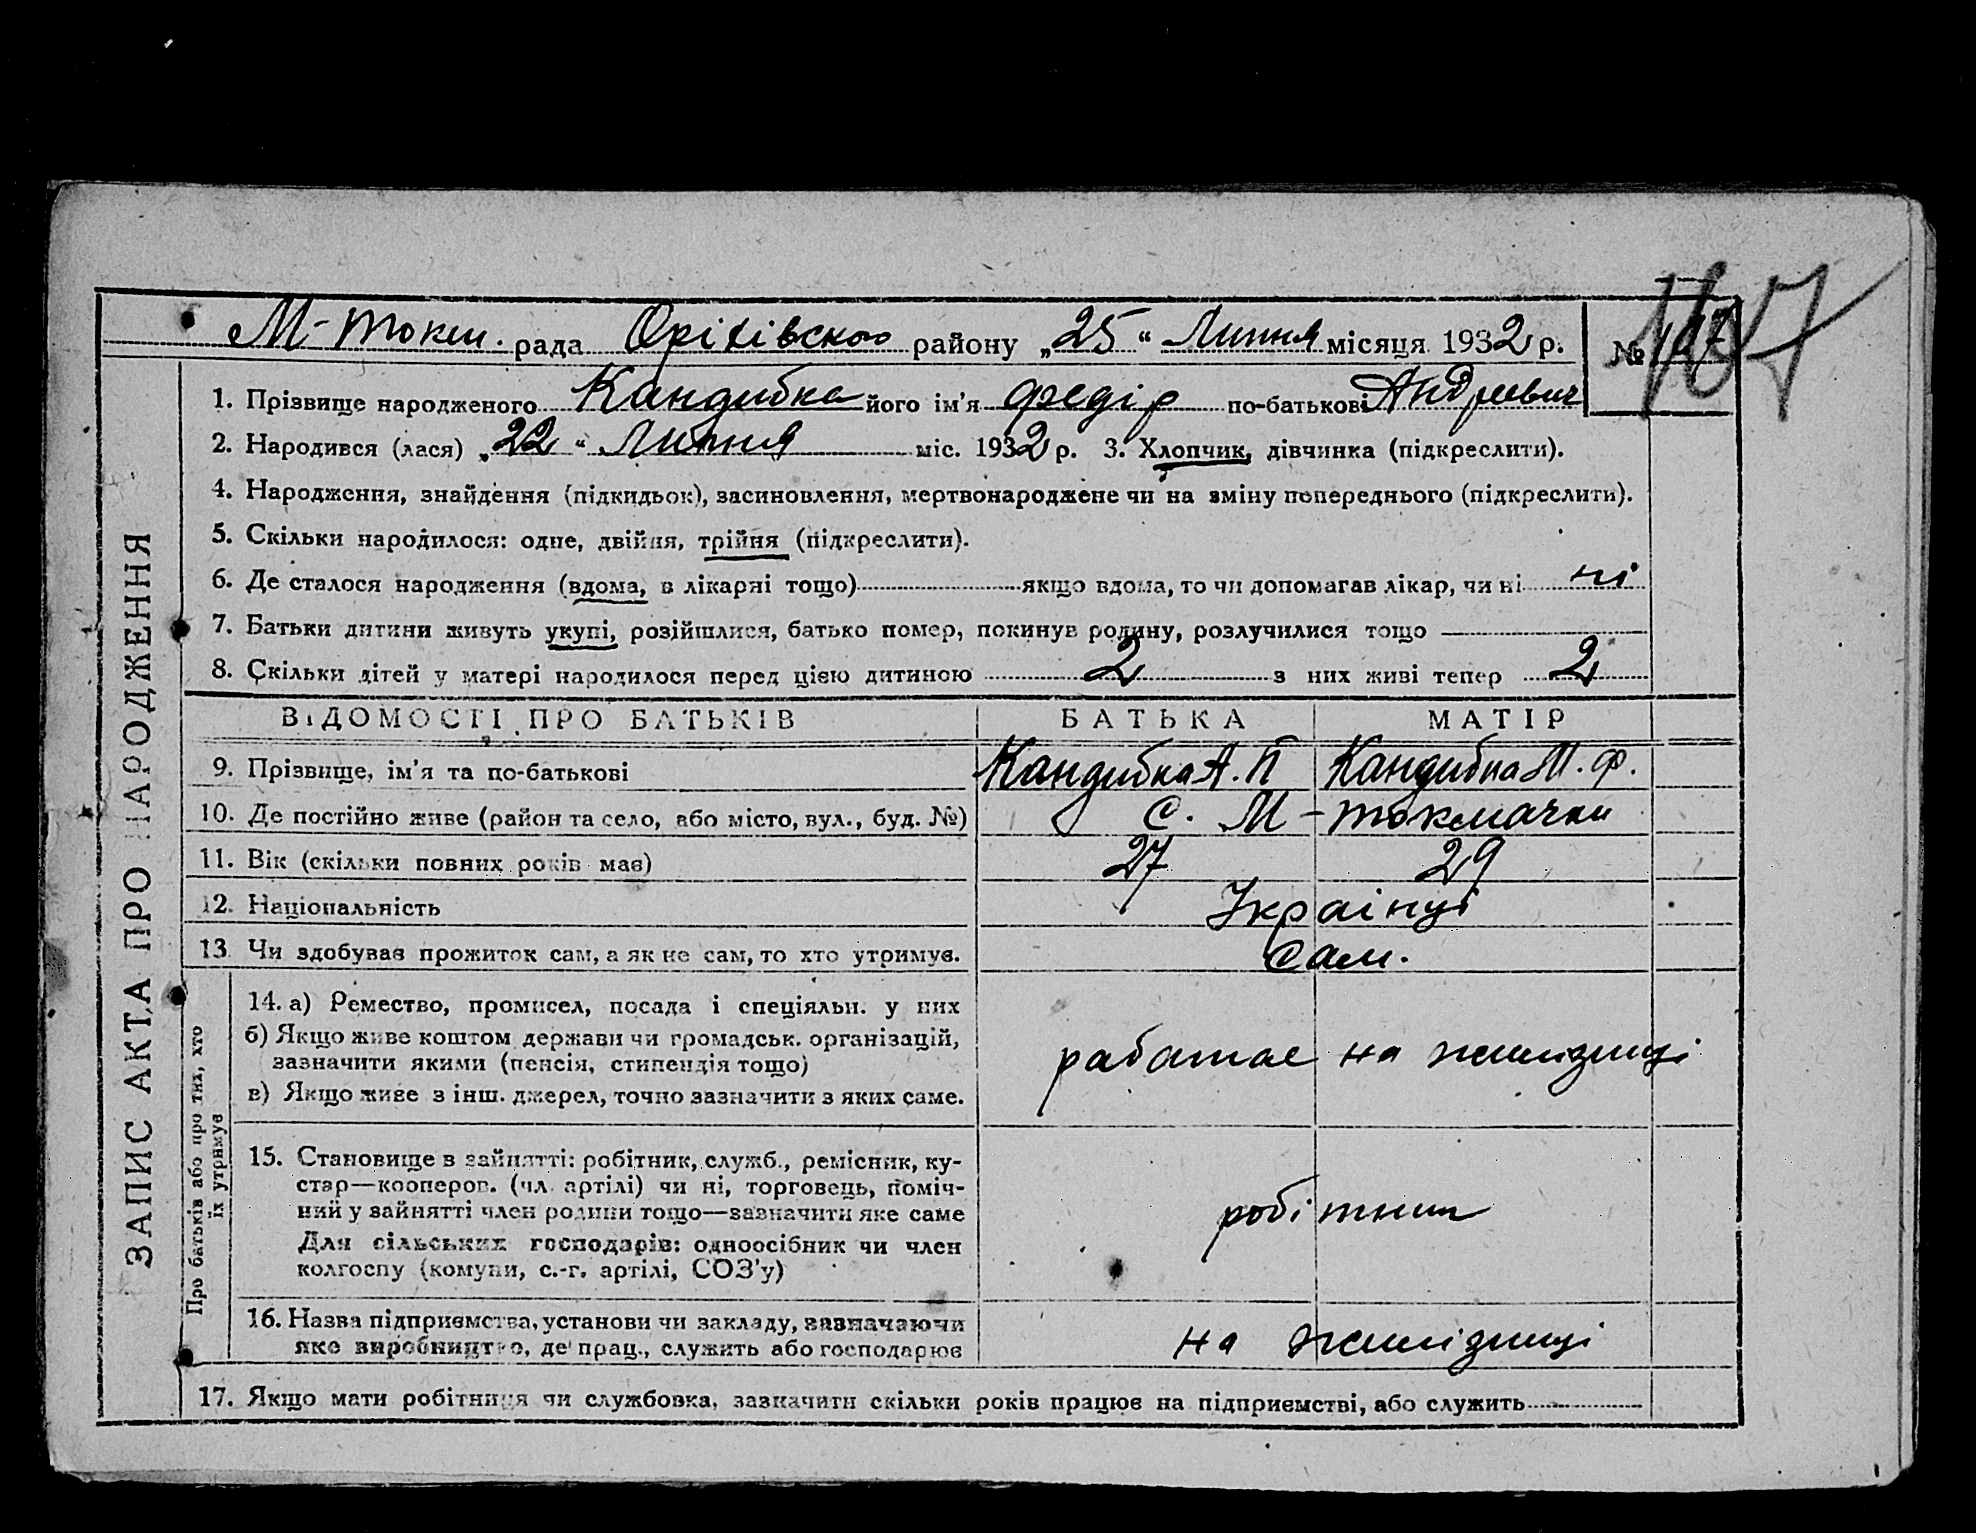 М-токм. рада Оріхівского району „25“ Липня місяця 1932 р. № 107
107
1. Прізвище народженого Кандибка його ім'я Федір по-батькові Андреевич
2. Народився (лася) „22“ Липня міс. 1932 р. 3. Хлопчик, дівчинка (підкреслити).
4. Народження, знайдення (підкидьок), засиновлення, мертвонароджене чи на зміну попереднього (підкреслити).
5. Скільки народилося: одне, двійня, трійня (підкреслити).
6. Де сталося народження (вдома, в лікарні тощо) якщо вдома, то чи допомагав лікар, чи ні ні
7. Батьки дитини живуть укупі, розійшлися, батько помер, покинув родину, розлучилися тощо
8. Скільки дітей у матері народилося перед цією дитиною 2 з них живі тепер 2
ЗАПИС АКТА ПРО НАРОДЖЕННЯ
ВІДОМОСТІ ПРО БАТЬКІВ БАТЬКА МАТІР
9. Прізвище, ім'я та по-батькові Кандибка А. П Кандибка М. Ф.
10. Де постійно живе (район та село, або місто, вул., буд. №) с. М-токмачки
11. Вік (скільки повних років має) 27 29
12. Національність Українці
13. Чи здобував прожиток сам, а як не сам, то хто утримує. сам.
Про батьків або про тих, хто
їх утримує
14. а) Ремество, промисел, посада і спеціяльн. у них
б) Якщо живе коштом держави чи громадськ. організацій,
зазначити якими (пенсія, стипендія тощо)
в) Якщо живе з інш. джерел, точно зазначити з яких саме.
работае на желизниці
15. Становище в зайнятті: робітник, служб., ремісник, ку-
стар—кооперов. (чл. артілі) чи ні, торговець, поміч-
ний у зайнятті член родини тощо—зазначити яке саме
Для сільських господарів: одноосібник чи член
колгоспу (комуни, с.-г. артілі, СОЗ'у)
робітник
16. Назва підприємства, установи чи закладу, зазначаючи
яке виробництво, де прац., служить або господарює
на желизниці
17. Якщо мати робітниця чи службовка, зазначити скільки років працює на підприємстві, або служить